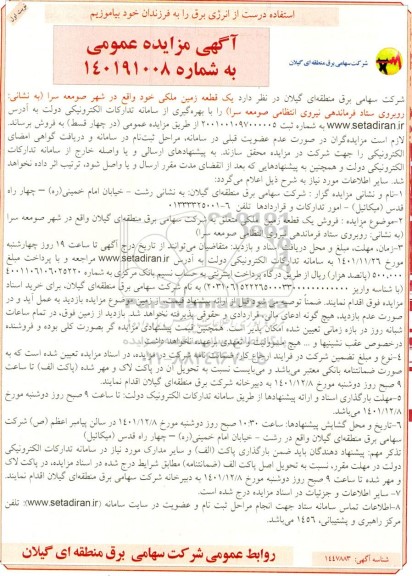 استفاده درست از انرژی برق را به فرزندان خود بیاموزیم
نوبت اول
آگهی مزایده عمومی
به شماره ۱۴۰۱۹۱۰۰۸
شرکت سهامی برق منطقه ای گیلان
شرکت سهامی برق منطقه‌ای گیلان در نظر دارد یک قطعه زمین ملکی خود واقع در شهر صومعه سرا (به نشانی:
روبروی ستاد فرماندهی نیروی انتظامی صومعه سرا) را با بهره‌گیری از سامانه تدارکات الکترونیکی دولت به آدرس
www.setadiran.ir به شماره ثبت از طریق مزایده عمومی (در چهار قسط) به فروش برساند.
لازم است مزایده‌گران در صورت عدم عضویت قبلی در سامانه، مراحل ثبت‌نام در سامانه و دریافت گواهی امضای
الکترونیکی را جهت شرکت در مزایده محقق سازند. به پیشنهادهای ارسالی و یا واصله خارج از سامانه تدارکات
الکترونیکی دولت و همچنین به پیشنهادهایی که بعد از انقضای مدت مقرر ارسال و یا واصل شود، ترتیب اثر داده نخواهد
شد. سایر اطلاعات مورد نیاز به شرح ذیل اعلام می‌گردد:
۱-نام و نشانی مزایده گزار : شرکت سهامی برق منطقه‌ای گیلان، به نشانی رشت - خیابان امام خمینی(ره) – چهار راه
قدس (میکائیل) - امور تدارکات و قراردادها تلفن
۲-موضوع مزایده : فروش یک قطعه زمین متعلق به شرکت سهامی برق منطقه‌ای گیلان واقع در شهر صومعه سرا
(به نشانی: روبروی ستاد فرماندهی نیروی انتظامی صومعه سرا)
۳-زمان، مهلت، مبلغ و محل دریافت اسناد و بازدید: متقاضیان می‌توانند از تاریخ درج آگهی تا ساعت ۱۹ روز چهارشنبه
مورخ ۱۴۰۱/۱۱/۲۶ به سامانه تدارکات الکترونیکی دولت، به آدرس www.setadiran.ir مراجعه و با پرداخت مبلغ
۵۰۰,۰۰۰ (پانصد هزار) ریال از طریق درگاه پرداخت اینترنتی به حساب سیم بانک مرکزی به شماره
(با شناسه واریز به نام شرکت سهامی برق منطقه‌ای گیلان، برای خرید اسناد
مزایده فوق اقدام نمایند. ضمناً از موضوع مزایده بازدید به عمل آید و در
صورت عدم بازدید، هیچ گونه ادعای مالی، قراردادی و حقوقی پذیرفته نخواهد شد. بازدید از زمین فوق، در تمام ساعات
شبانه روز در بازه زمانی تعیین شده امکان پذیر است. همچنین قیمت پیشنهادی مزایده گر بصورت کلی بوده و فروشنده
درخصوص عقب نشینیها و ... هیچ مسؤولیت و تعهدی برعهده نخواهد داشت.
۴-نوع و مبلغ تضمین شرکت در فرایند ارجاع کار (ضمانتنامه شرکت در مزایده)، در اسناد مزایده تعیین شده است که به
صورت ضمانتنامه بانکی معتبر می‌باشد و می‌بایست نسبت به تحویل آن در پاکت لاک و مهر شده (پاکت الف) تا ساعت
۹ صبح روز دوشنبه مورخ ۱۴۰۱/۱۲/۸ به دبیرخانه شرکت برق منطقه‌ای گیلان اقدام نمایند.
۵-مهلت بارگذاری اسناد و ارائه پیشنهادها از طریق سامانه تدارکات الکترونیک دولت: تا ساعت ۹ صبح روز دوشنبه مورخ
۱۴۰۱/۱۲/۸ می‌باشد.
۶-تاریخ و محل گشایش پیشنهادها: ساعت ۱۰:۳۰ صبح روز دوشنبه مورخ ۱۴۰۱/۱۲/۸ در سالن پیامبر اعظم (ص) شرکت
سهامی برق منطقه‌ای گیلان واقع در رشت - خیابان امام خمینی(ره) – چهار راه قدس (میکائیل)
تذکر مهم: پیشنهاد دهندگان باید ضمن بارگذاری پاکت (الف) و سایر مدارک مورد نیاز در سامانه تدارکات الکترونیکی
دولت در مهلت مقرر، نسبت به تحویل اصل پاکت الف (ضمانتنامه) مطابق شرایط درج شده در اسناد مزایده، در پاکت لاک
و مهر شده تا ساعت ۹ صبح روز دوشنبه مورخ ۱۴۰۱/۱۲/۸ به دبیرخانه شرکت سهامی برق منطقه‌ای گیلان اقدام نمایند.
۷- سایر اطلاعات و جزئیات در اسناد مزایده درج شده است.
۸-اطلاعات تماس سامانه ستاد جهت انجام مراحل ثبت نام و عضویت در سایت سامانه (www.setadiran.ir): تلفن
مرکز راهبری و پشتیبانی، ۱۴۵۶ می‌باشد.
شناسه آگهی: ۱۴۴۷۸۸۳
روابط عمومی شرکت سهامی برق منطقه ای گیلان